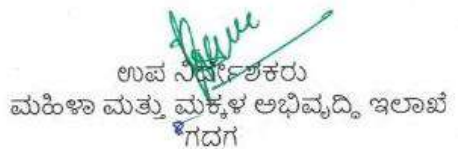 ಉಪ ನಿರ್ದೇಶಕರು
ಮಹಿಳಾ ಮತ್ತು ಮಕ್ಕಳ ಅಭಿವೃದ್ಧಿ ಇಲಾಖೆ
ಗದಗ